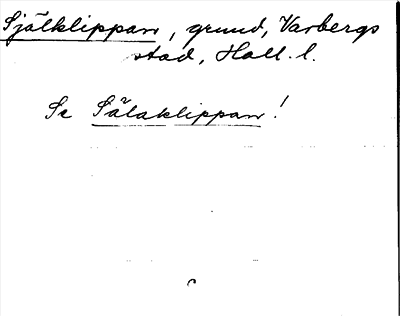 Själklippan, grund, Varbergs
stad, Hall. l.
Se Sälaklippan!